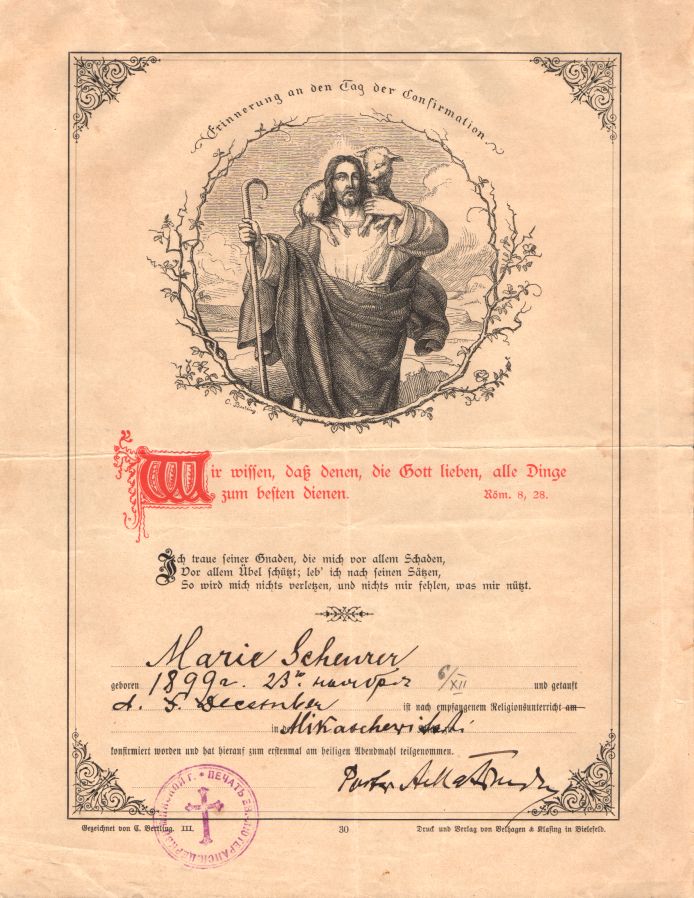 Erinnerung an den Tag der Confirmation.
C. Bertling
Wir wissen, daß denen, die Gott lieben, alle Dinge
zum besten dienen. Röm. 8, 28.
Ich traue seiner Gnaden, die mich vor allem Schaden,
Vor allem Übel schützt; leb' ich nach seinen Sätzen,
So wird mich nichts verletzen, und nichts mir fehlen, was mir nützt.
Marie Scheurer
geboren 1899 г. 23го ноября 6/XII und getauft
d. 5. December ist nach empfangenem Religionsunterricht am
in
konfirmiert worden und hat hierauf zum erstenmal am heiligen Abendmahl teilgenommen.
Pastor
ПЕЧАТЬ ЕВ.-ЛЮТЕРАНСК. ЦЕРКВИ
Gezeichnet von C. Bertling. III. 30 Druck und Verlag von Velhagen & Klasing in Bielefeld.